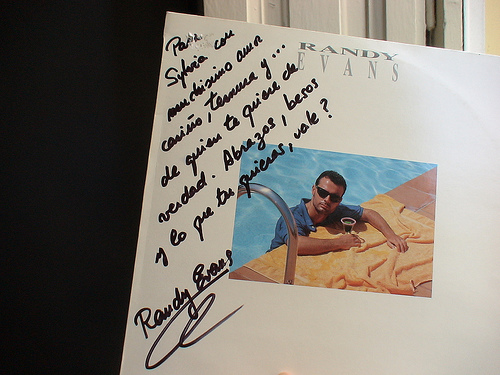 Para
Sylvia con
muchisimo amor
cariño, ternura y...
de quien te quiere de
verdad. Abrazos, besos
y lo que tu quieras, vale?
Randy Evans
RANDY
EVANS